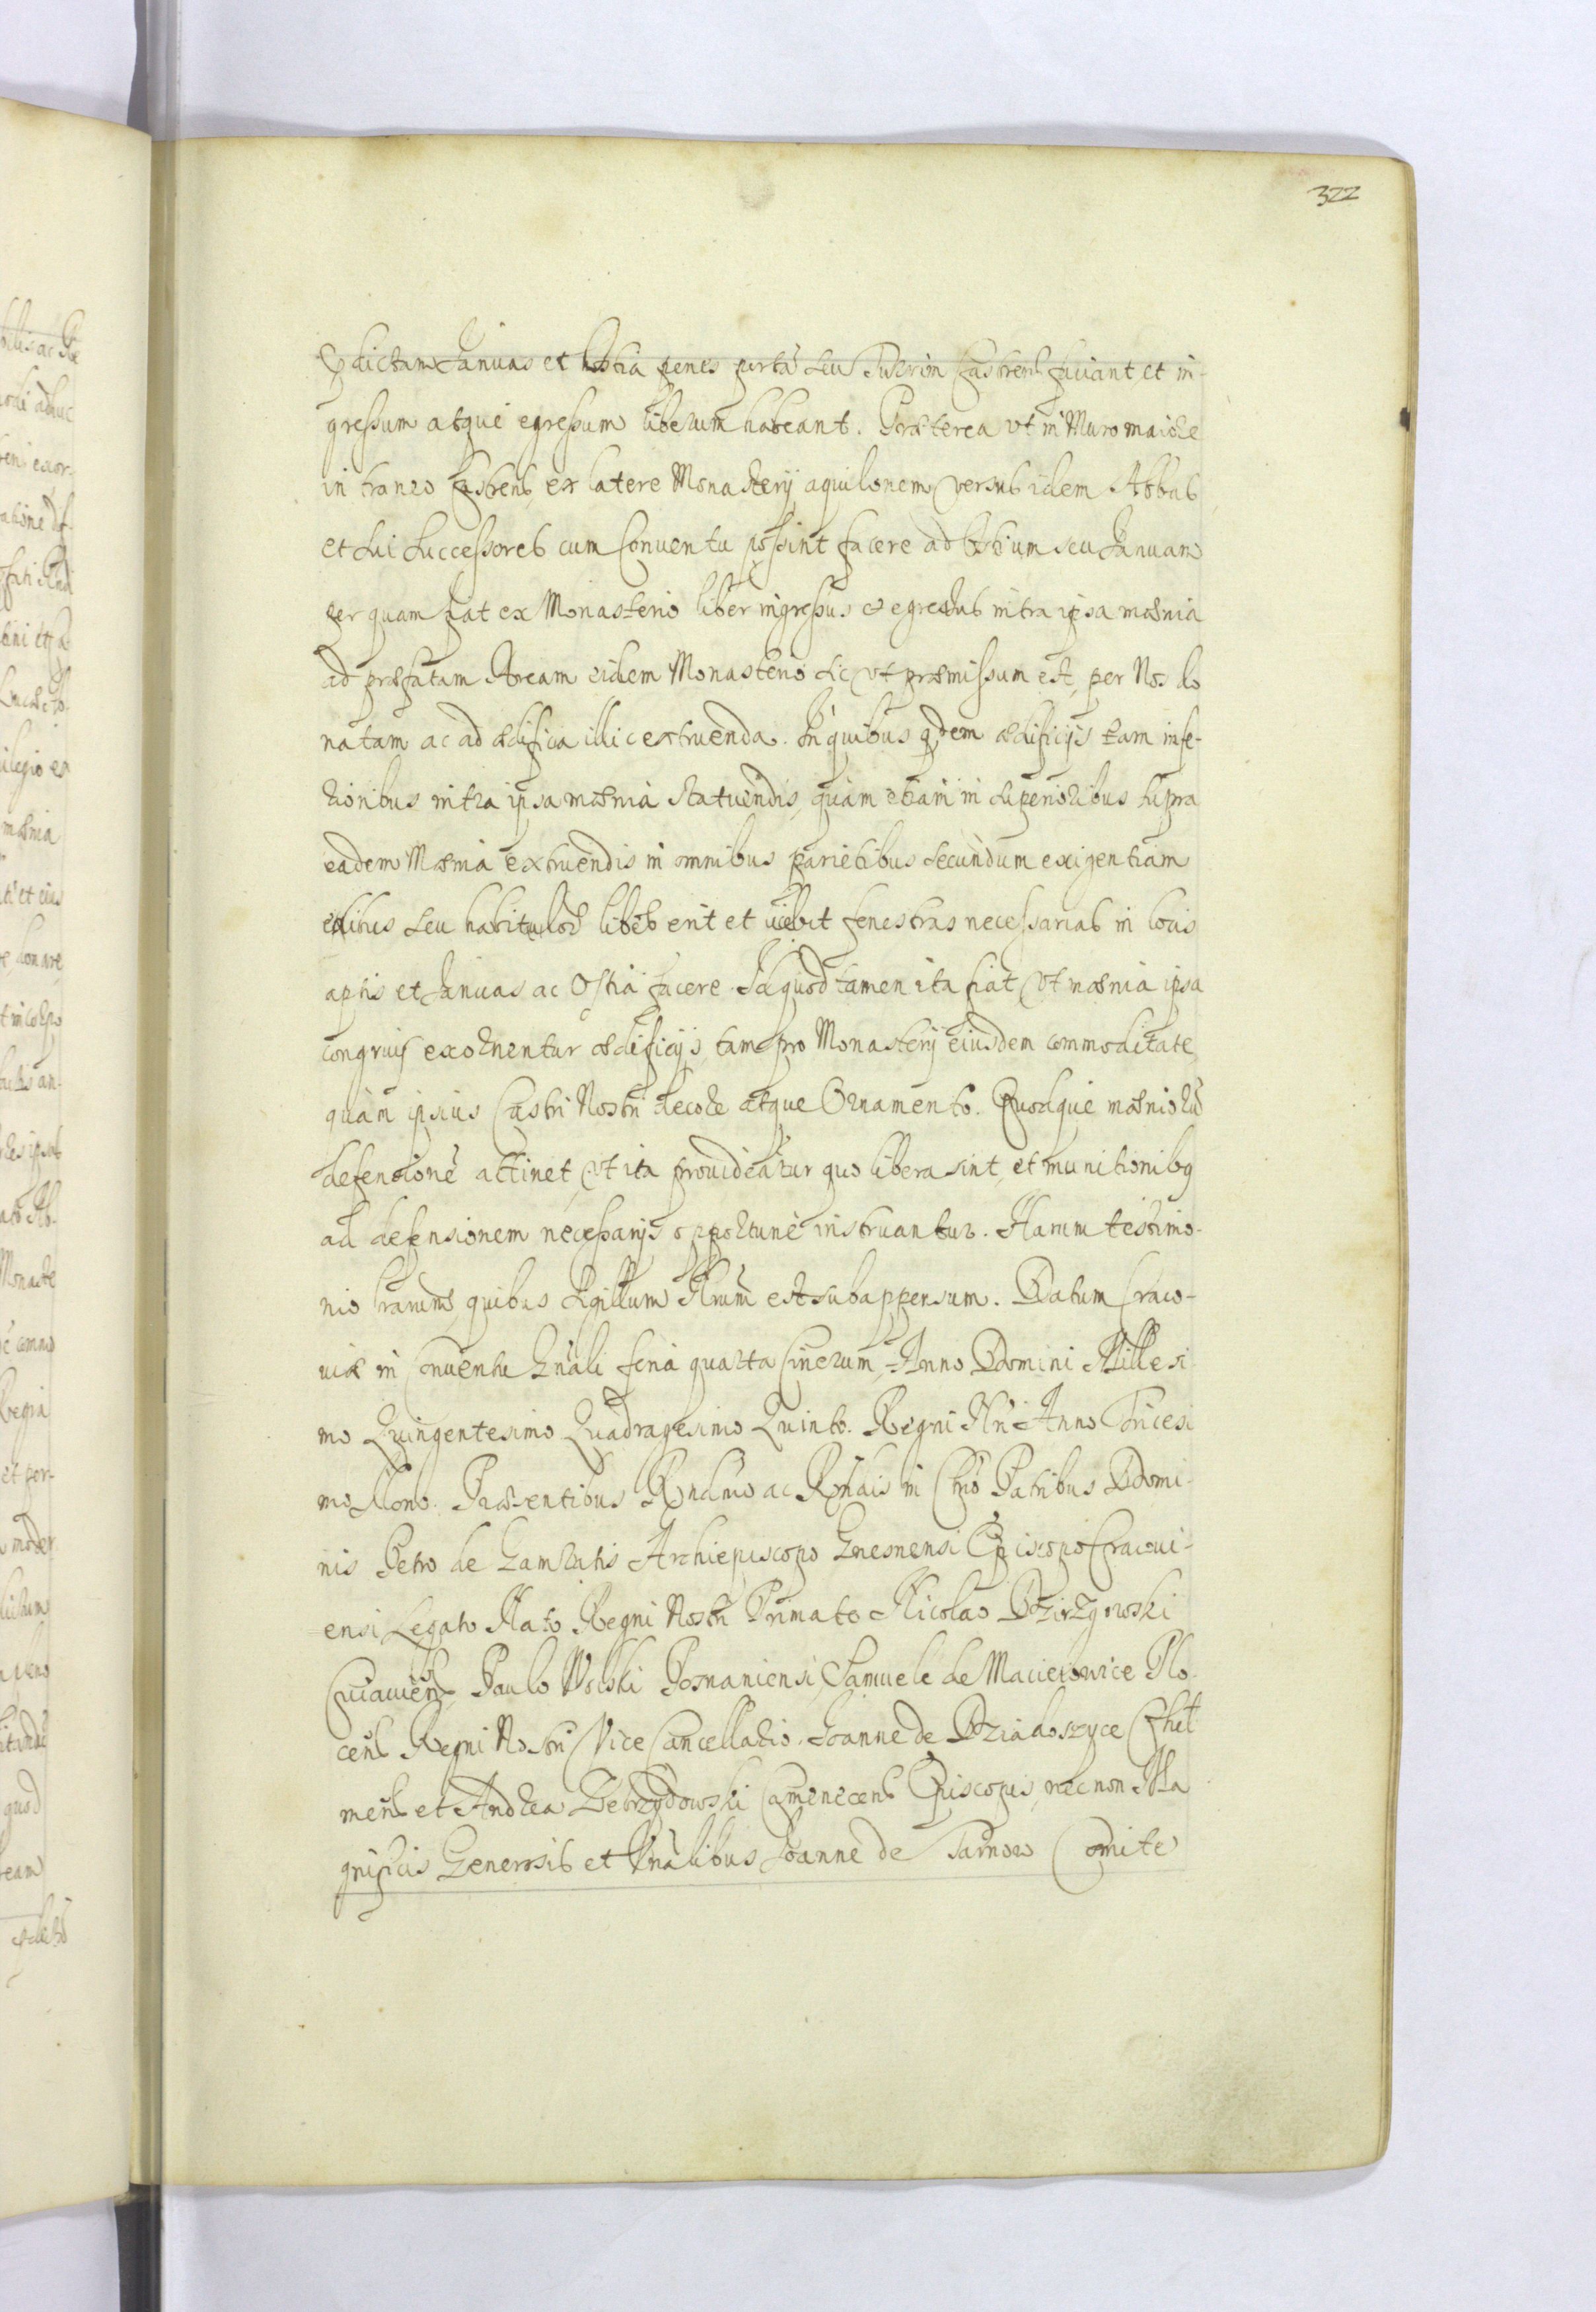 322
dictam Januas et hostia penes portã seu Turrim Castrens faciant et in-
gressum atque egressum liberum habeant. Præterea vt in Muro maiore
in transo Castrens, ex latere Monasterÿ aquilonem versus idem Abbas
et sui Successores cum Conuentu possint facere ad Ostium seu Januam
per quam fiat ex Monasterio liber ingressus et egressus intra ipsa mænia
ad præfatam Aream eidem Monasterio sic vt præmissum est, per Nos do
natam ac ad ædificia illic extruenda. In quibus qdem ædificijs tam infe-
rioribus intra ipsa mænia statuendis, quàm etiam in superioribus supra
eadem Mænia extruendis in omnibus parietibus secundum exigentiam
ædibus seu habitulor libeb erit et licebit fenestras necessarias in locis
aptis et Januas ac Ostia facere. Id quod tamen ita fiat vt mænia ipsa
congruis exornentur ædificijs, tam pro Monasterij eiusdem commoditate,
quàm ipsius Castri Nostri decore atque Ornamento. Quodque mænioru
defensionẽ attinet, vt ita prouideatur quo libera sint, et munitionibq
ad defensionem necessarijs opportunè instruantur. Harum testimo-
nio trarum, quibus Sigillum Nrum est subappensum. Datum Craco-
uiæ in Conuentu Gnali feria quarta Cinerum, Anno Domini Millesi
mo Quingentesimo Quadragesimo Quinto. Regni Nri Anno Tricesi
mo Nono. Præsentibus Rndmo ac Rndis in Chro Patribus Domi-
nis Petro de Gamratis Archiepiscopo Gnesnensi Episcopo Cracoui-
ensi Legato Nato Regni Nostri Primato Nicolao Dzirzgowski
Cuiauiens, Paulo Wolski Posnaniensi, Samuele de Maciejowice Plo-
cens Regni Nostri Vice Cancellario. Joanne de Dziadoszyce Chel
mens et Andrea Zebrzydowski Camenecens Episcopis, necnon Ma
gnificis Generosis et Vnalibus Joanne de Tarnow Comite